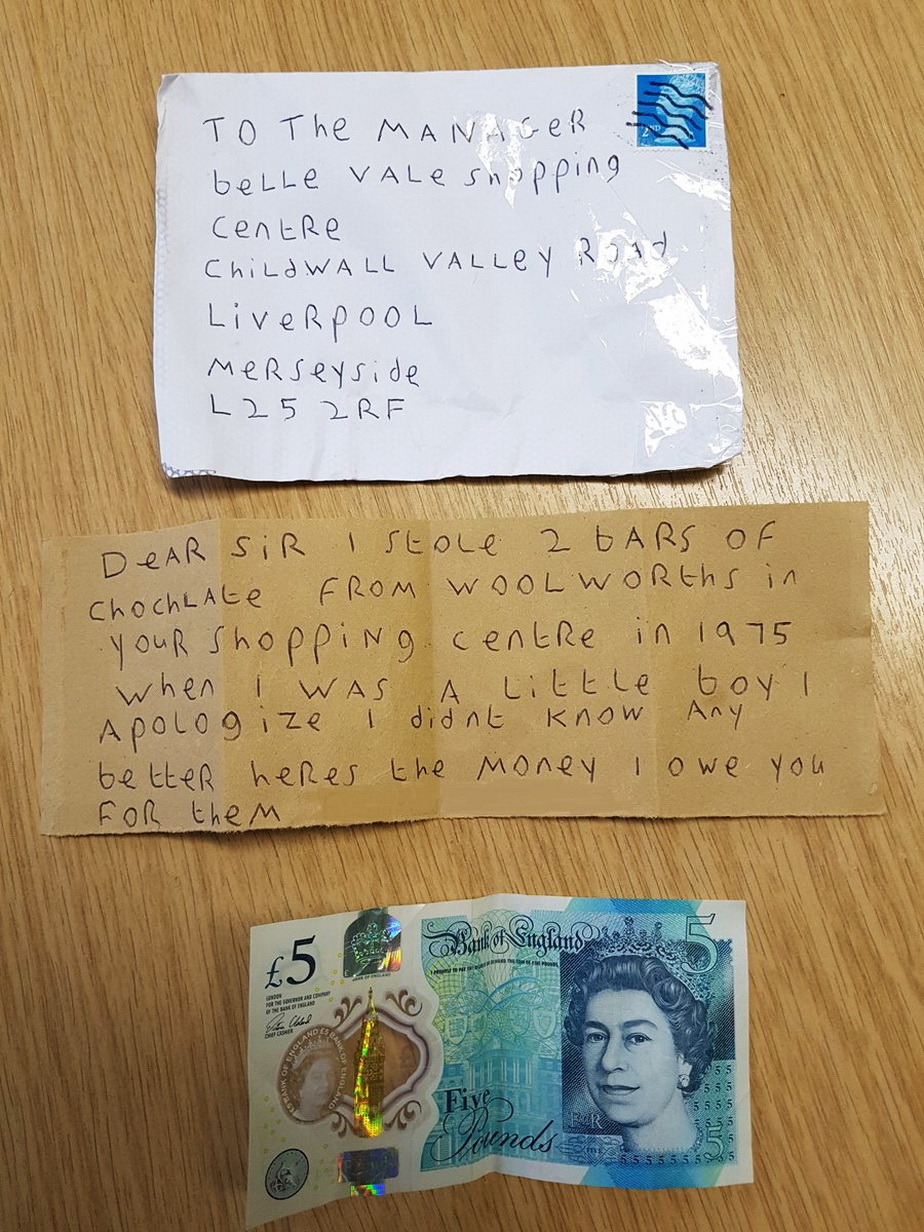 TO The MANAGeR
beLLe VALe shopping
CentRe
ChildWALL VALLey Road
LiveRpOOL
MeRSeyside
L25 2RF
2ND
DeAR SiR I StOLe 2 bARS OF
ChochLAte FROM WOOLWORthS in
youR Shopping centRe in 1975
when I WAS A Little boy I
Apologize I didnt know Any
betteR heRes the Money I owe you
FOR theM
£5
Bank of England
5
I PROMISE TO PAY THE BEARER ON DEMAND THE SUM OF FIVE POUNDS
BANK OF ENGLAND
LONDON
FOR THE GOVERNOR AND COMPANY
OF THE BANK OF ENGLAND
CHIEF CASHIER
£5 BANK OF ENGLAND
Five
Pounds